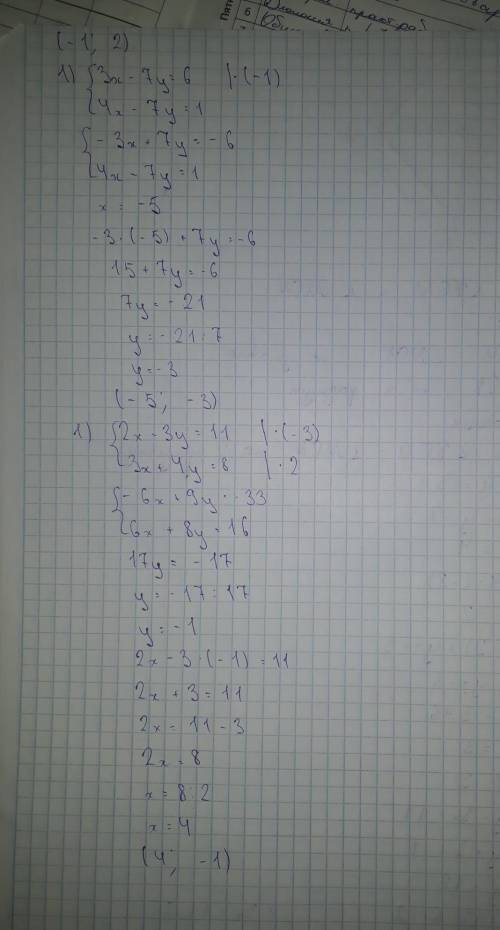 Пятн
6
(-1; 2)
1) {3x - 7y = 6 | · (-1)
{4x - 7y = 1
{-3x + 7y = -6
{4x - 7y = 1
x = -5
-3 · (-5) + 7y = -6
15 + 7y = -6
7y = -21
y = -21 : 7
y = -3
(-5; -3)
1) {2x - 3y = 11 | · (-3)
{3x + 4y = 8 | · 2
{-6x + 9y = -33
{6x + 8y = 16
17y = -17
y = -17 : 17
y = -1
2x - 3 · (-1) = 11
2x + 3 = 11
2x = 11 - 3
2x = 8
x = 8 : 2
x = 4
(4; -1)